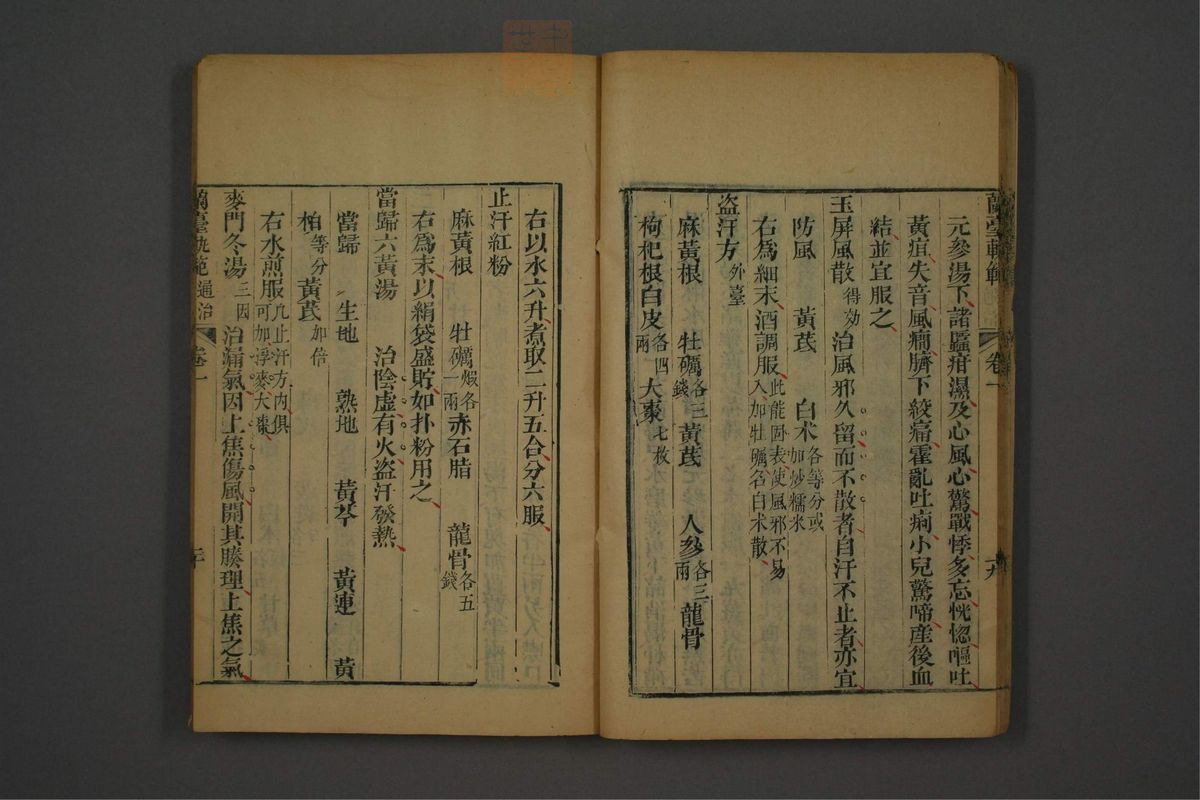 蘭臺軌範 卷一 十九
元參湯下諸䘌疳濕及心風心驚戰悸多忘恍惚嘔吐
黃疸失音風癎臍下絞痛霍亂吐痢小兒驚啼產後血
結並宜服之
玉屏風散得効 治風邪久留而不散者自汗不止者亦宜
防風 黃芪 白术各等分或加炒糯米
右爲細末酒調服此能固表使風邪不易入加牡礪名白术散
盜汗方外臺
麻黃根 牡礪各三錢 黃芪 人參各三兩 龍骨
枸杞根白皮各四兩 大棗七枚
右以水六升煮取二升五合分六服
止汗紅粉
麻黃根 牡礪煆各一兩 赤石脂 龍骨各五錢
右爲末以絹袋盛貯如扑粉用之
當歸六黃湯 治陰虛有火盜汗發熱
當歸 生地 熟地 黃芩 黃連 黃
柏等分 黃芪加倍
右水煎服凢止汗方內俱可加浮麥大棗
麥門冬湯三因 治漏氣因上焦傷風開其腠理上焦之氣
蘭臺軌範 通治 卷一 二十